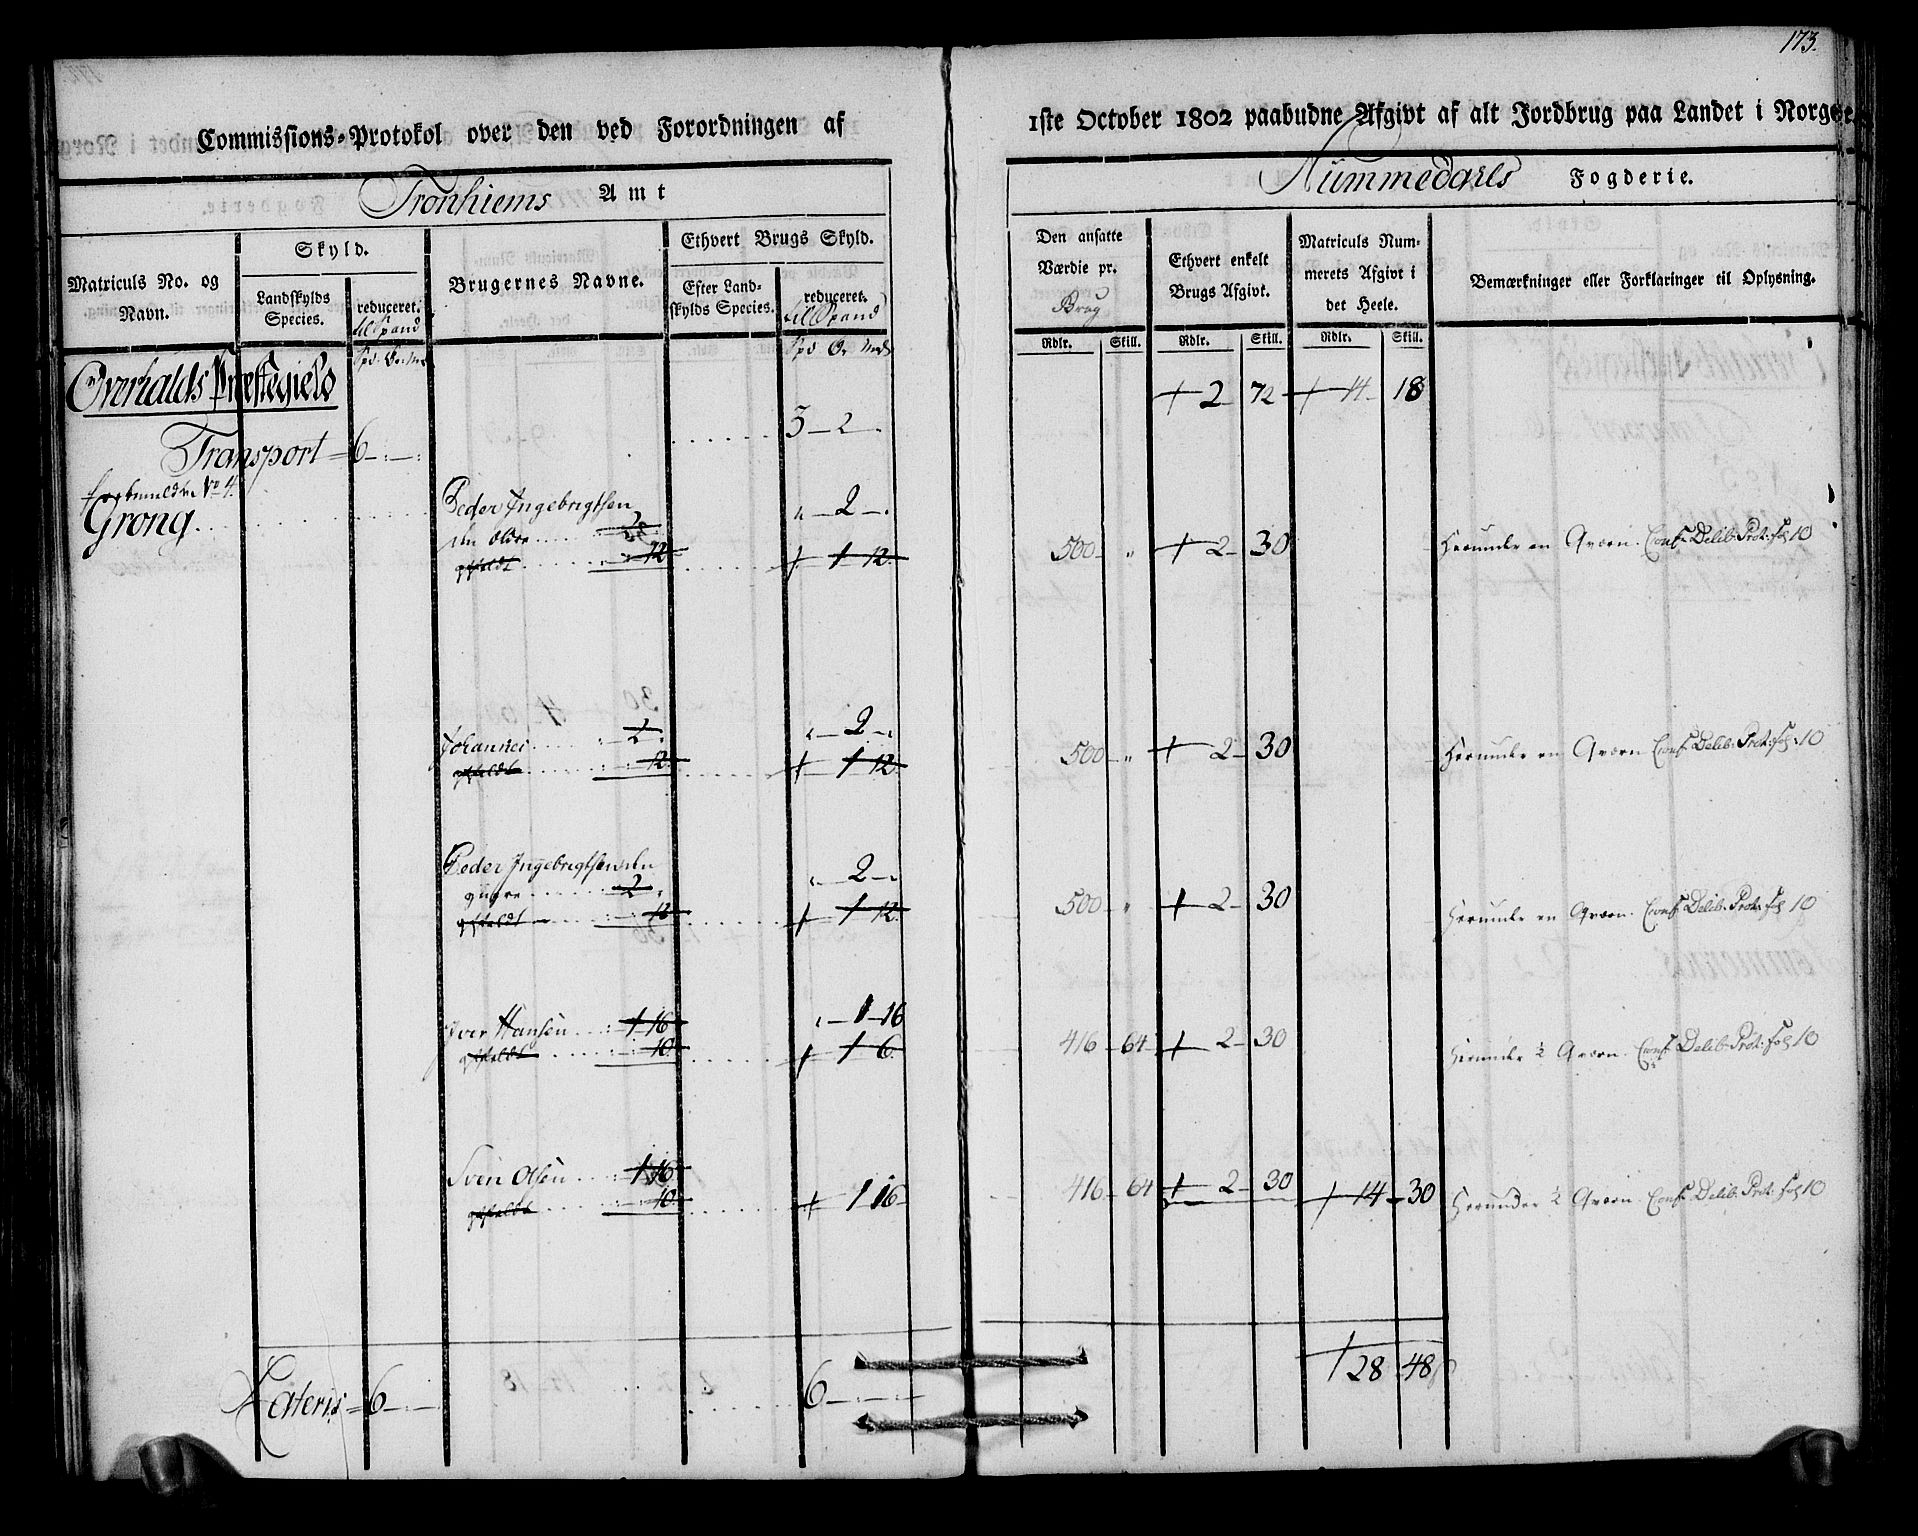 173.
Commissions-Protokol over den ved Forordningen af 1ste October 1802 paabudne Afgivt af alt Jordbrug paa Landet i Norge.
Tronhiems Amt
Nummedahls Fogderie.
Matriculs No. og Navn.
Skyld.
Landskylds Species.
reduceret.
til Spand
Brugernes Navne.
Ethvert Brugs Skyld.
Efter Landskylds Species.
reduceret.
til Spand
Den ansatte Værdie pr.
Brug
Ethvert enkelt Brugs Afgivt.
Matriculs Nummerets Afgivt i det Heele.
Bemærkninger eller Forklaringer til Oplysning.
Rdlr. Skill. Rdlr. Skill. Rdlr. Skill.
Spd. Ør Mrk
Overhalds Præstegield
2 72 14 18
Transport 6 3 2
No 4.
Grong
Peder Ingebrigtsen
den ældre 2
12 1 12
500 " 2 30 Herunder en Qværn. Conf. Delib. Prot. fol 10
Johannes 2 2
12 1 12
500 " 2 30 Herunder en Qværn Conf. Delib. Prot. fol. 10
Peder Ingebrigtsen den
yngre 2 2
12 1 12
500 " 2 30 Herunder en Qværn. Conf. Delib. Prot. fol 10
Iver Hansen 1 16 1 16
10 1 6
416 64 2 30 Herunder ½ Qværn. Conf. Delib. Prot. fol 10
Sven Olsen 1 16
10. 1 16
416 64 2 30 14 30 Herunder ½ Qværn. Conf. Delib. Prot. fol 10
28 48
Lateris 6 6